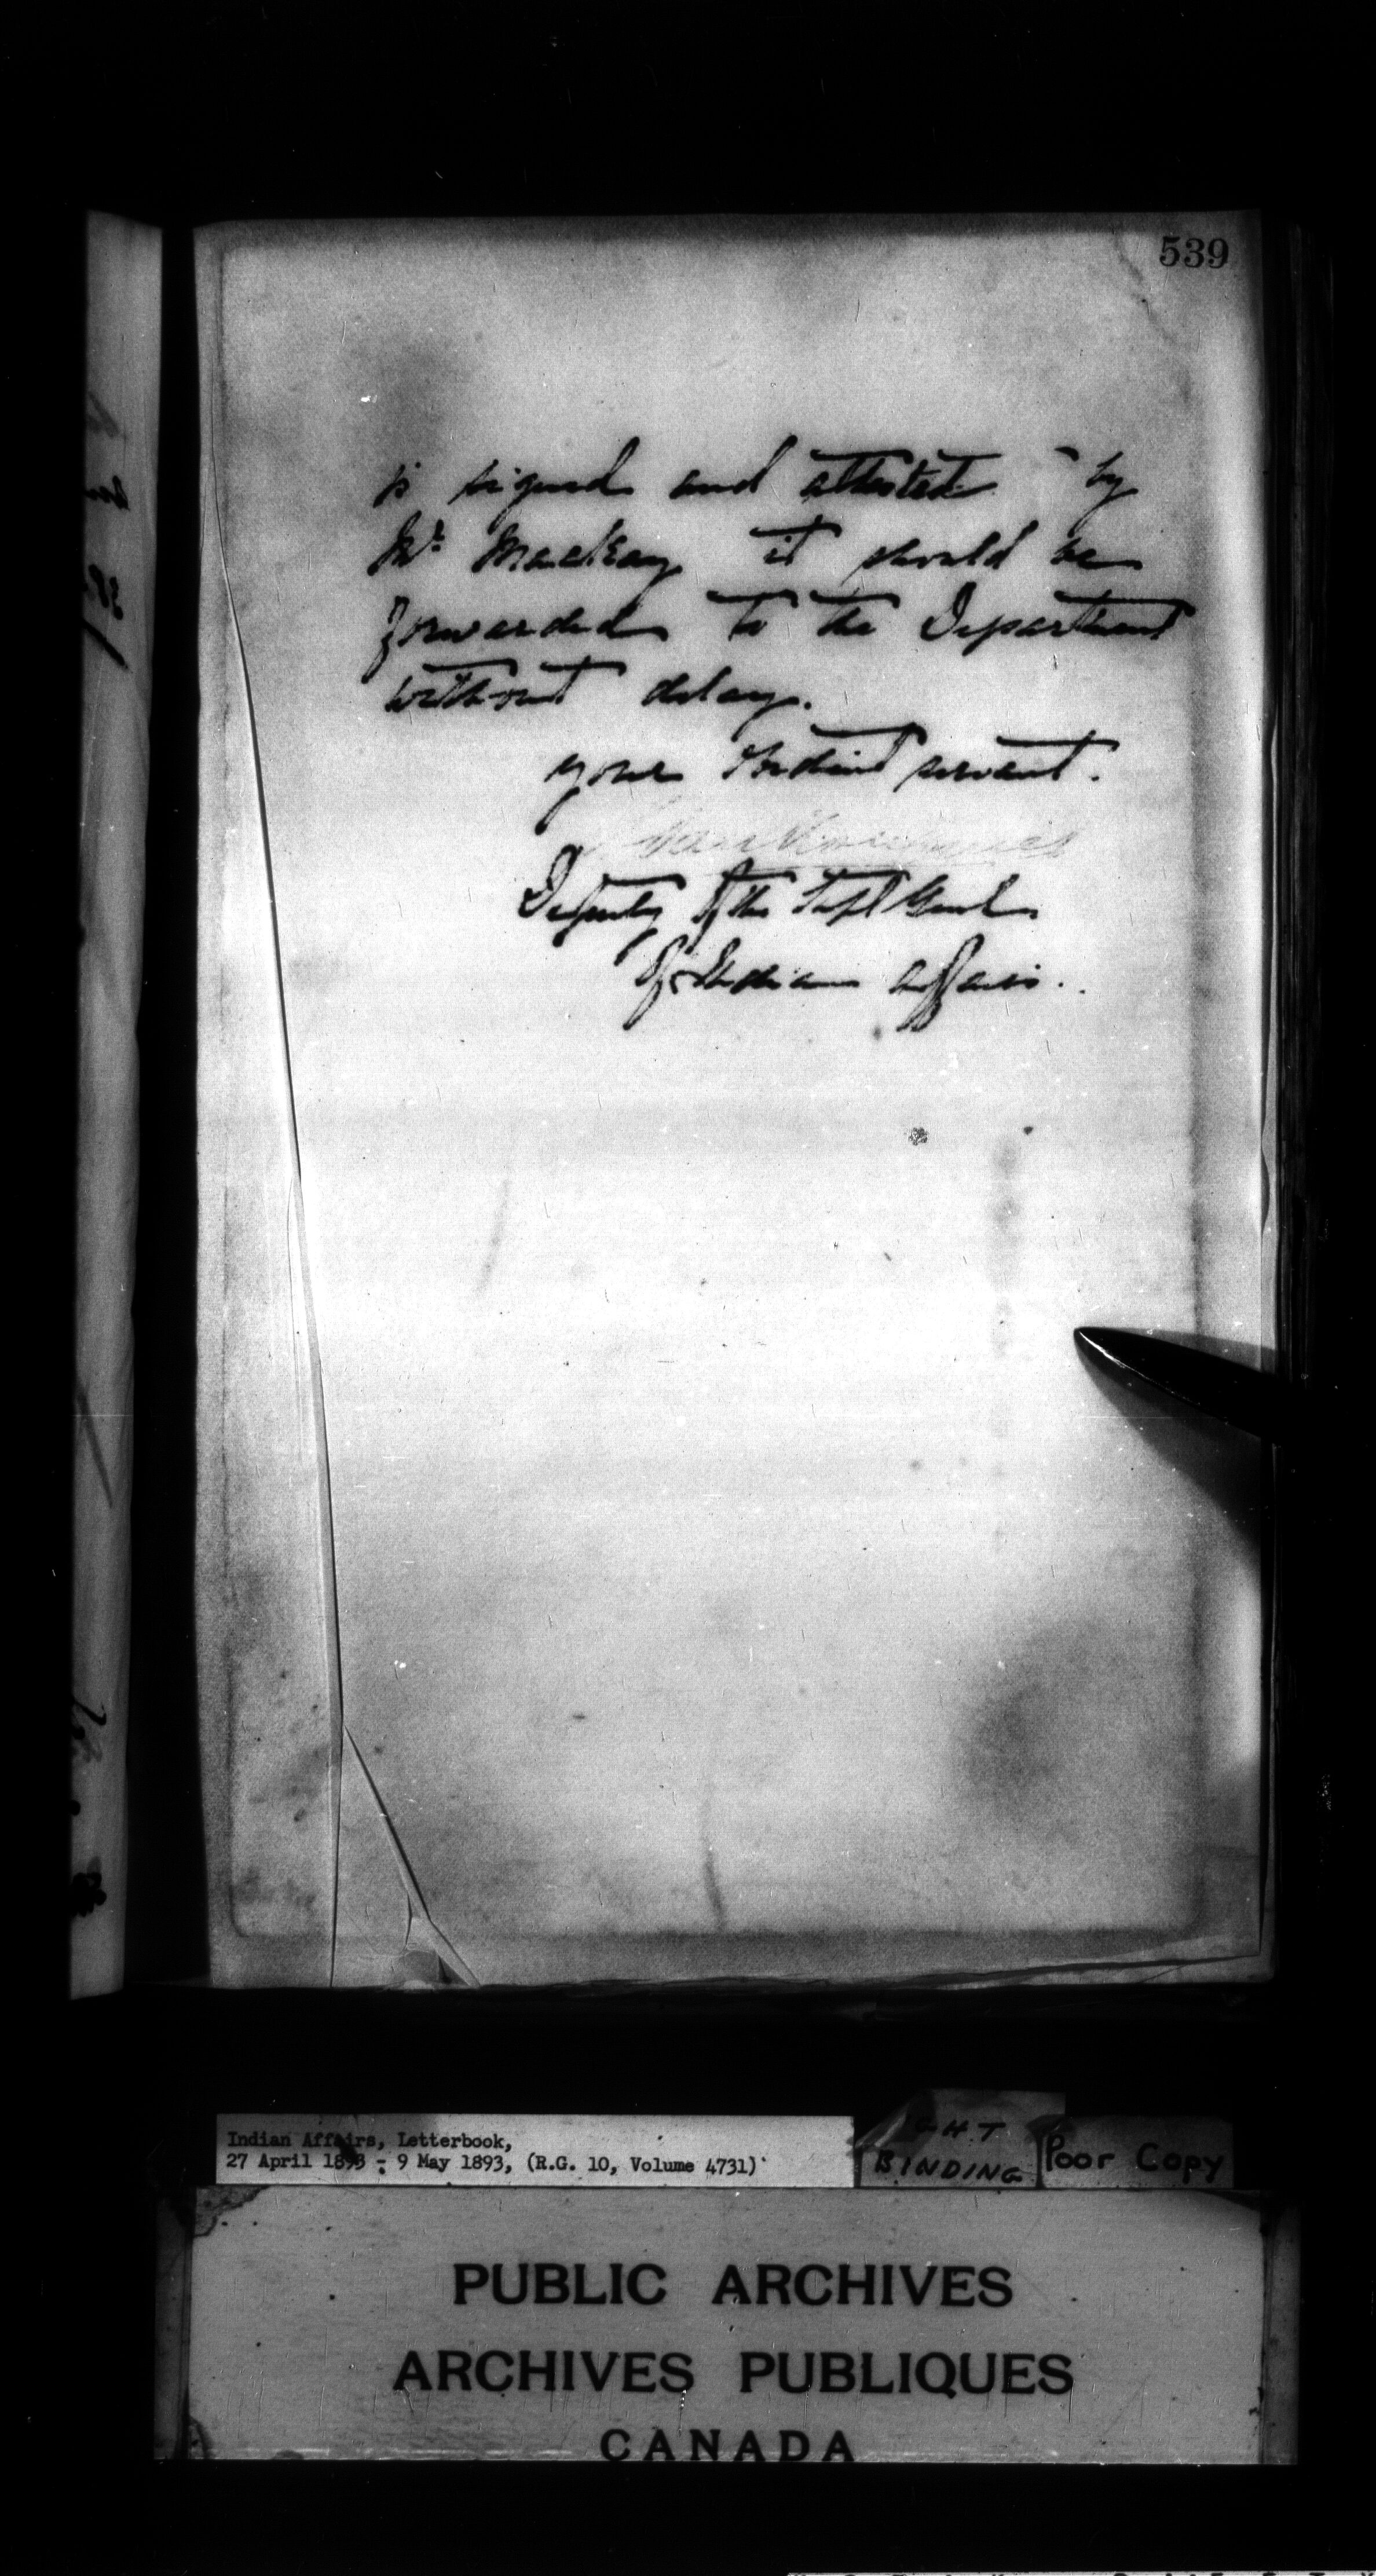 539
is signed and attested by
Mr. MacKay it should be
forwarded to the Department
without delay.
your obedient servant.
Deputy of the Supt Genl
of Indian affairs.
Indian Affairs, Letterbook,
27 April 1893 - 9 May 1893, (R.G. 10, Volume 4731)
BINDING
Poor Copy
PUBLIC ARCHIVES
ARCHIVES PUBLIQUES
CANADA